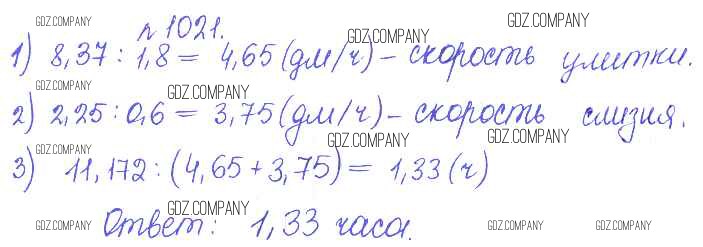 GDZ.COMPANY № 1021. GDZ.COMPANY
1) 8,37 : 1,8 = 4,65 (дм/ч) – скорость улитки.
GDZ.COMPANY
GDZ.COMPANY GDZ.COMPANY
2) 2,25 : 0,6 = 3,75 (дм/ч) – скорость слизня.
GDZ.COMPANY GDZ.COMPANY GDZ.COMPANY
3) 11,172 : (4,65 + 3,75) = 1,33 (ч)
GDZ.COMPANY
Ответ: 1,33 часа.
GDZ.COMPANY GDZ.COMPANY GDZ.COMPANY